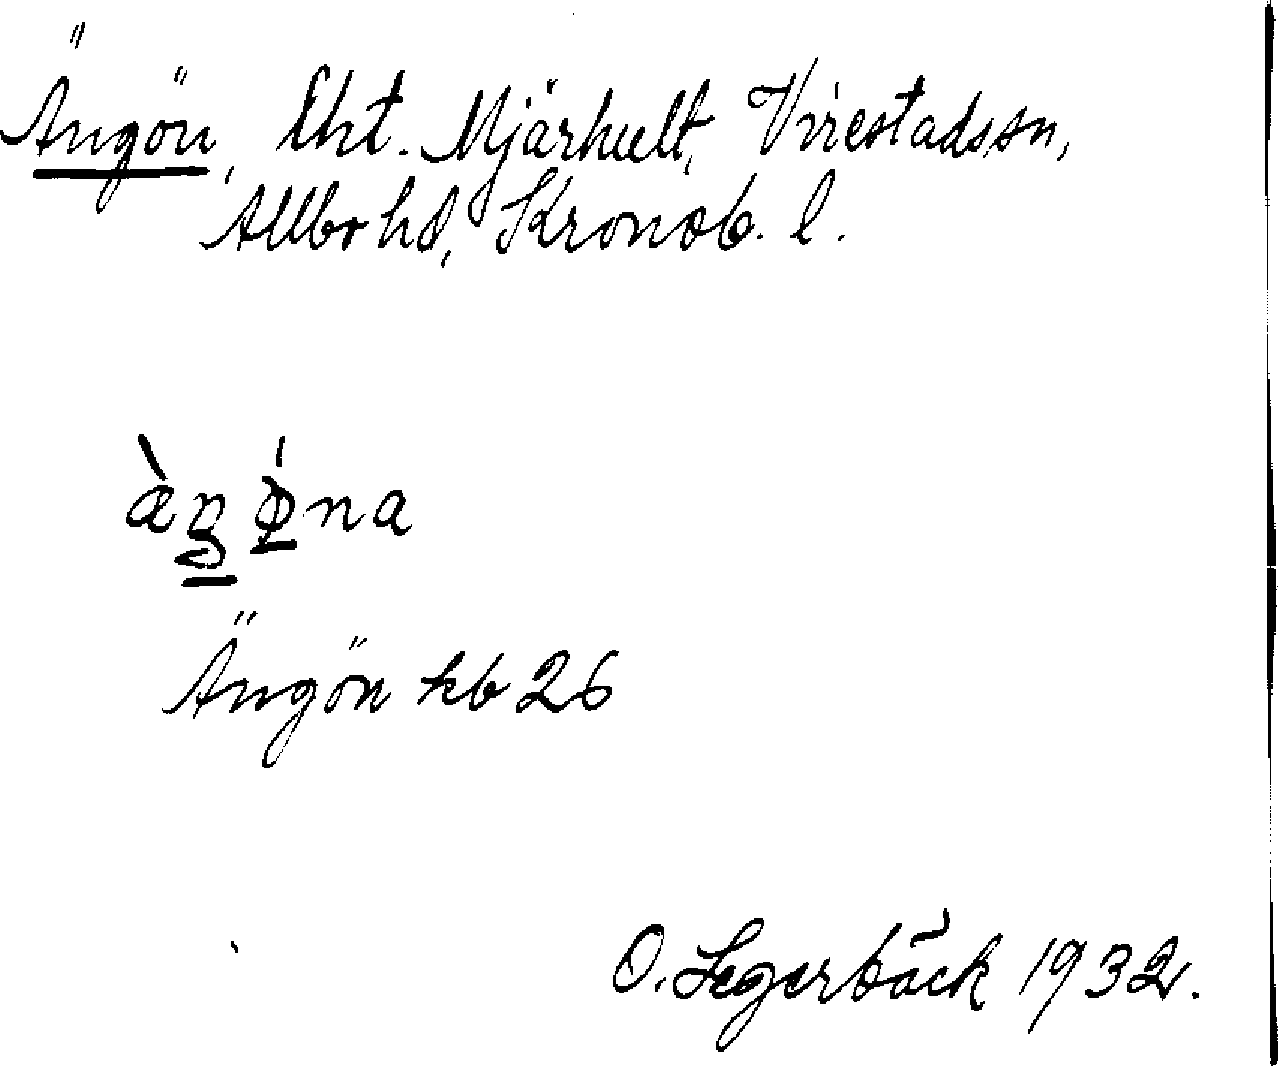 Ängön, Lht. Mjärhult, Virestads sn,
Allbo hd, Kronob. l.
æ̀ŋ ǿna
Ängön kb 26
O. Segerbäck 1932.